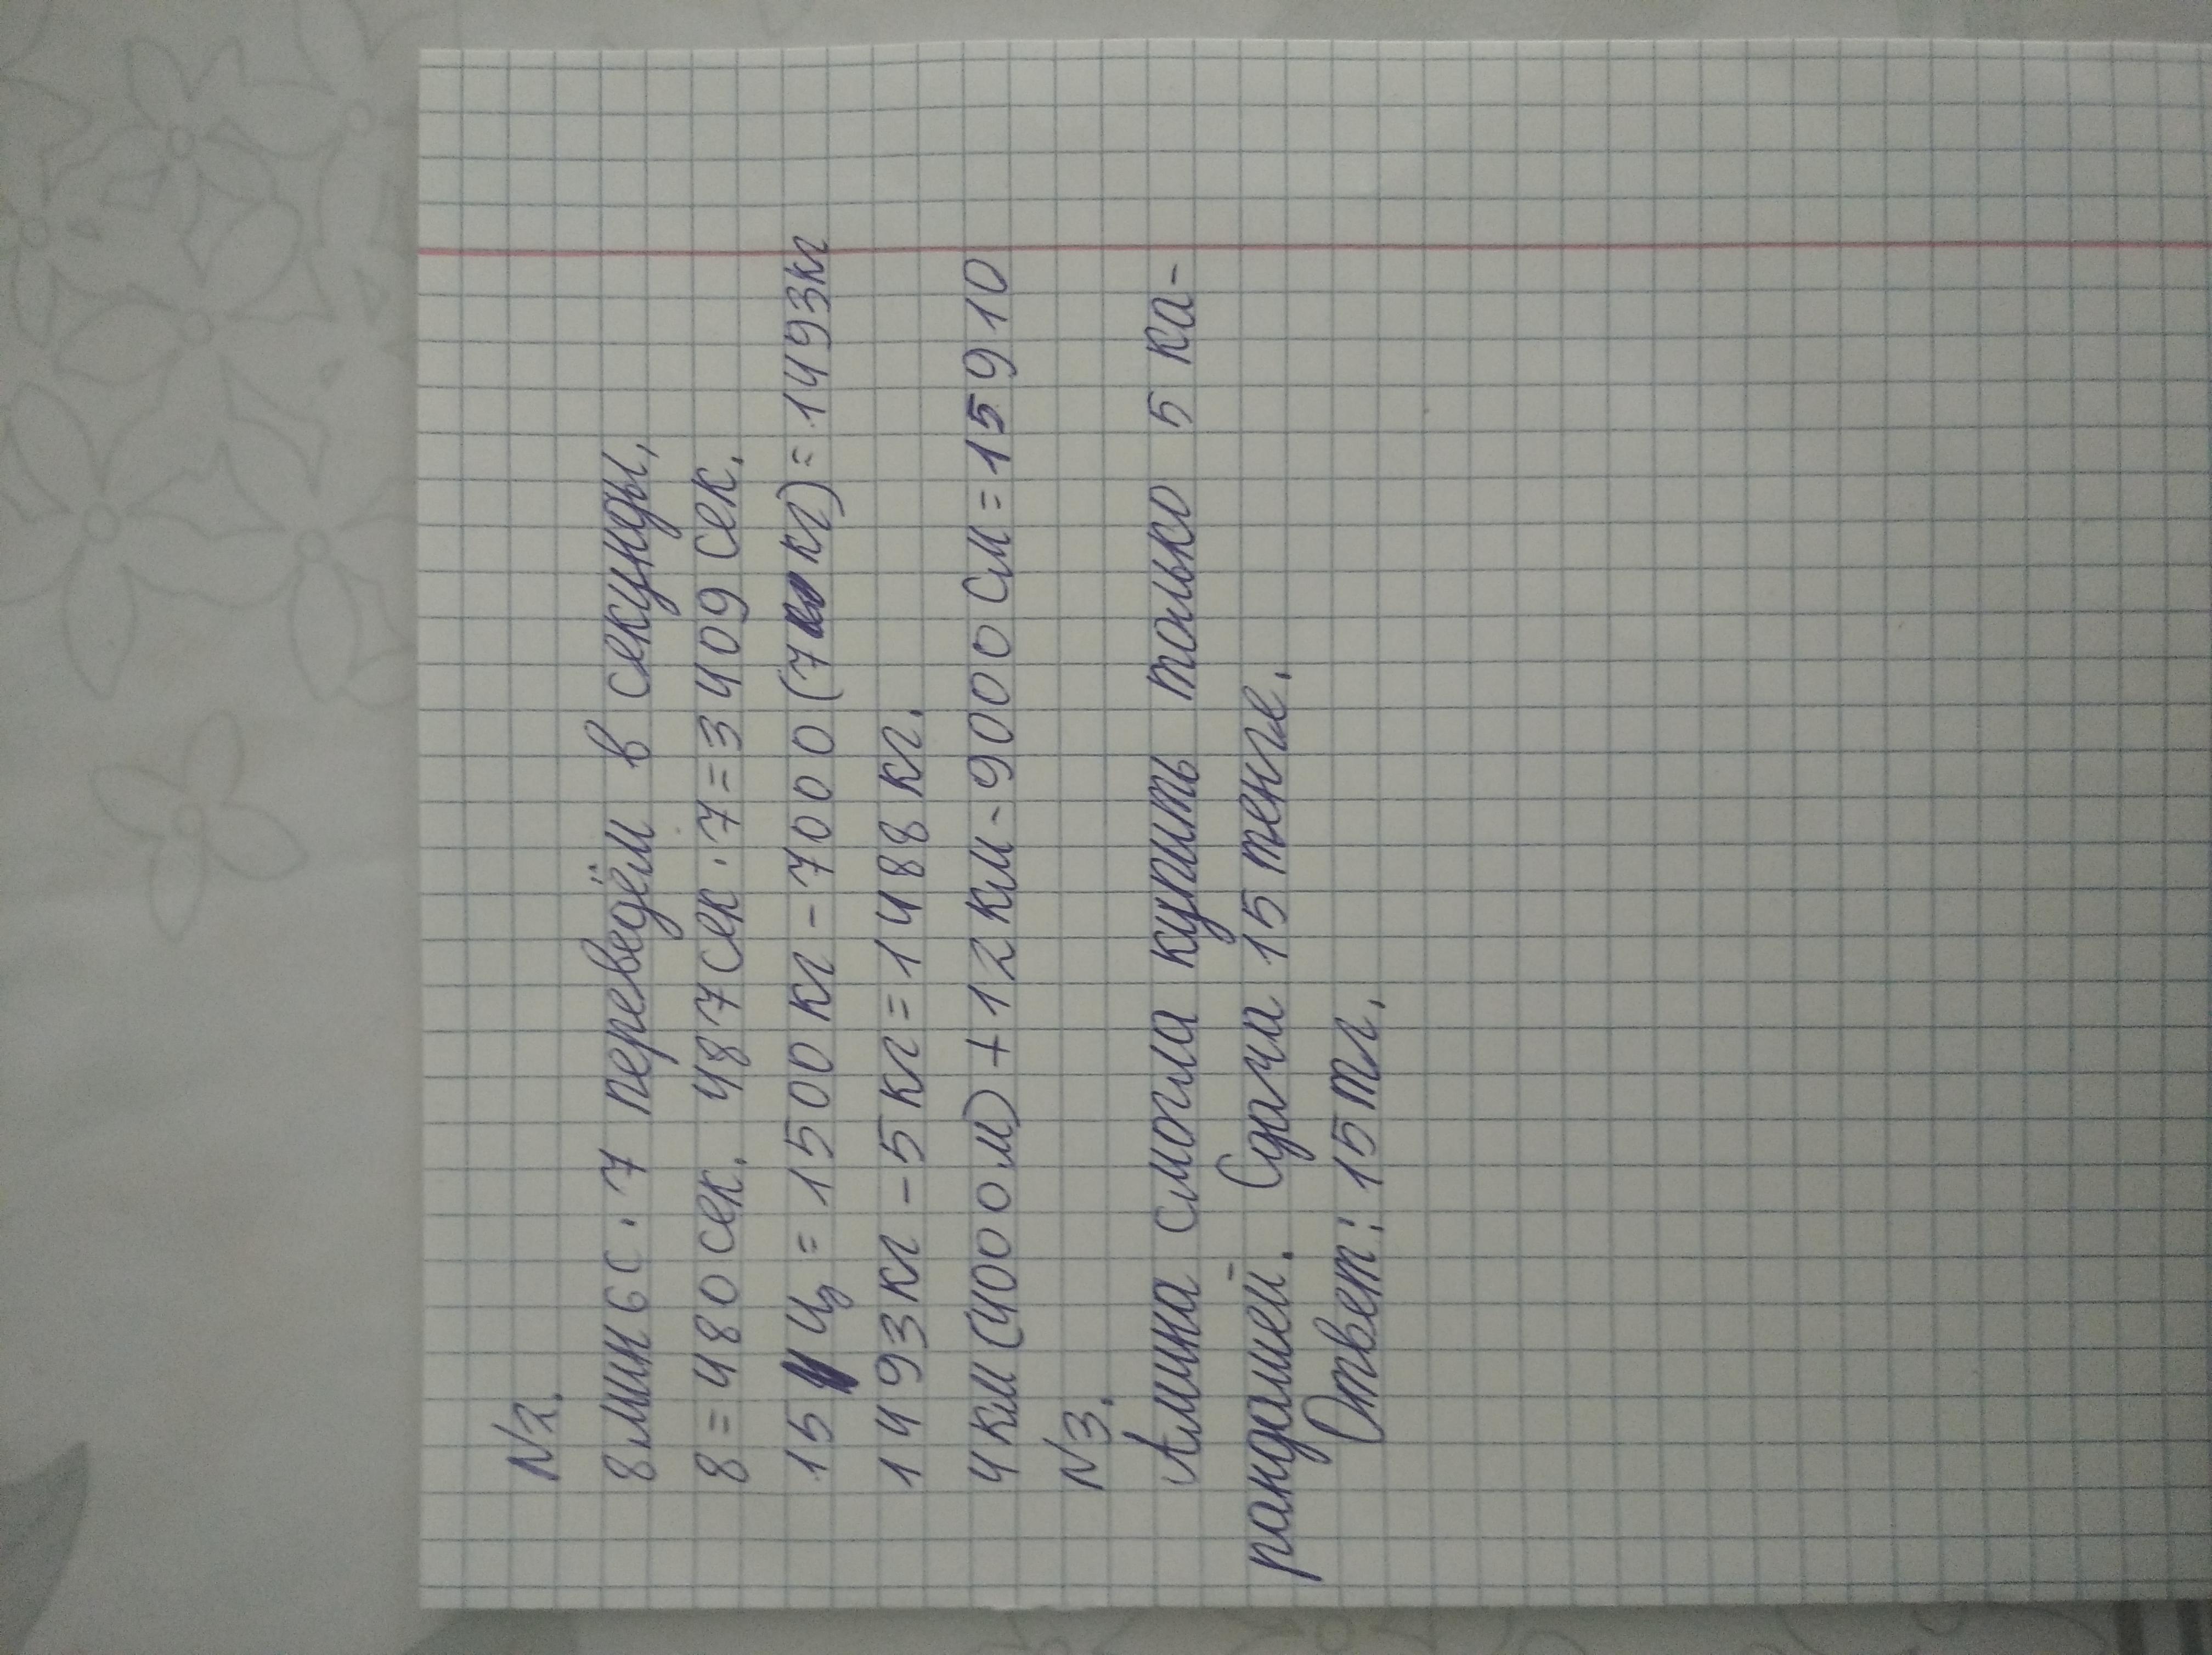 N2.
8мин 6с · 7 переведём в секунды,
8 = 480 сек. 487 сек · 7 = 3409 сек.
15 ц = 1500 кг - 7000 (7 кг) = 1493кг
1493кг - 5кг = 1488 кг.
4км (4000м) + 12км - 9000 см = 15910
N3.
Амина смогла купить только 5 ка-
рандашей. Сдача 15 тенге.
Ответ: 15 тг.